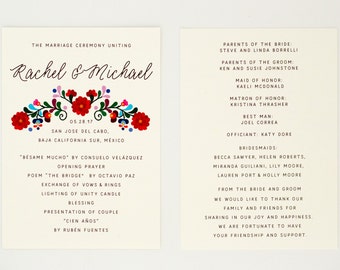 THE MARRIAGE CEREMONY UNITING
Rachel & Michael
05.28.17
SAN JOSE DEL CABO,
BAJA CALIFORNIA SUR, MÉXICO
"BÉSAME MUCHO" BY CONSUELO VELÁZQUEZ
OPENING PRAYER
POEM "THE BRIDGE" BY OCTAVIO PAZ
EXCHANGE OF VOWS & RINGS
LIGHTING OF UNITY CANDLE
BLESSING
PRESENTATION OF COUPLE
"CIEN AÑOS"
BY RUBÉN FUENTES
PARENTS OF THE BRIDE:
STEVE AND LINDA BORRELLI
PARENTS OF THE GROOM:
KEN AND SUSIE JOHNSTONE
MAID OF HONOR:
KAELI MCDONALD
MATRON OF HONOR:
KRISTINA THRASHER
BEST MAN:
JOEL CORREA
OFFICIANT: KATY DORE
BRIDESMAIDS:
BECCA SAWYER, HELEN ROBERTS,
MIRANDA GUILIANI, LILY MOORE,
LAUREN PORT & HOLLY MOORE
FROM THE BRIDE AND GROOM
WE WOULD LIKE TO THANK OUR
FAMILY AND FRIENDS FOR
SHARING IN OUR JOY AND HAPPINESS.
WE ARE FORTUNATE TO HAVE
YOUR FRIENDSHIP AND SUPPORT.